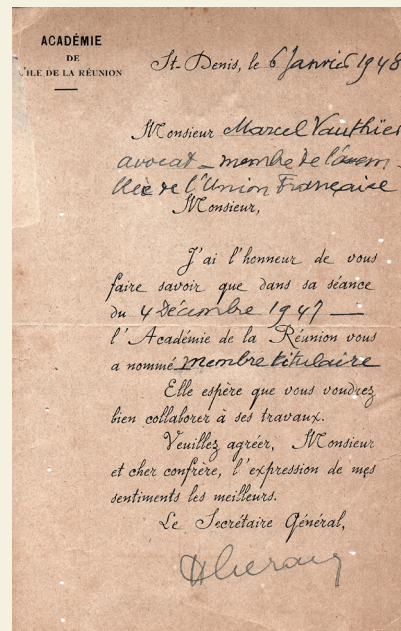 ACADÉMIE
DE
L'ILE DE LA RÉUNION
St-Denis, le 6 Janvier 1948
Monsieur Marcel Vauthier
avocat - membre de l'assem-
blée de l'Union Française
Monsieur,
J'ai l'honneur de vous
faire savoir que dans sa séance
du 4 Décembre 1947
l'Académie de la Réunion vous
a nommé membre titulaire
Elle espère que vous voudrez
bien collaborer à ses travaux.
Veuillez agréer, Monsieur
et cher confrère, l'expression de mes
sentiments les meilleurs.
Le Secrétaire Général,